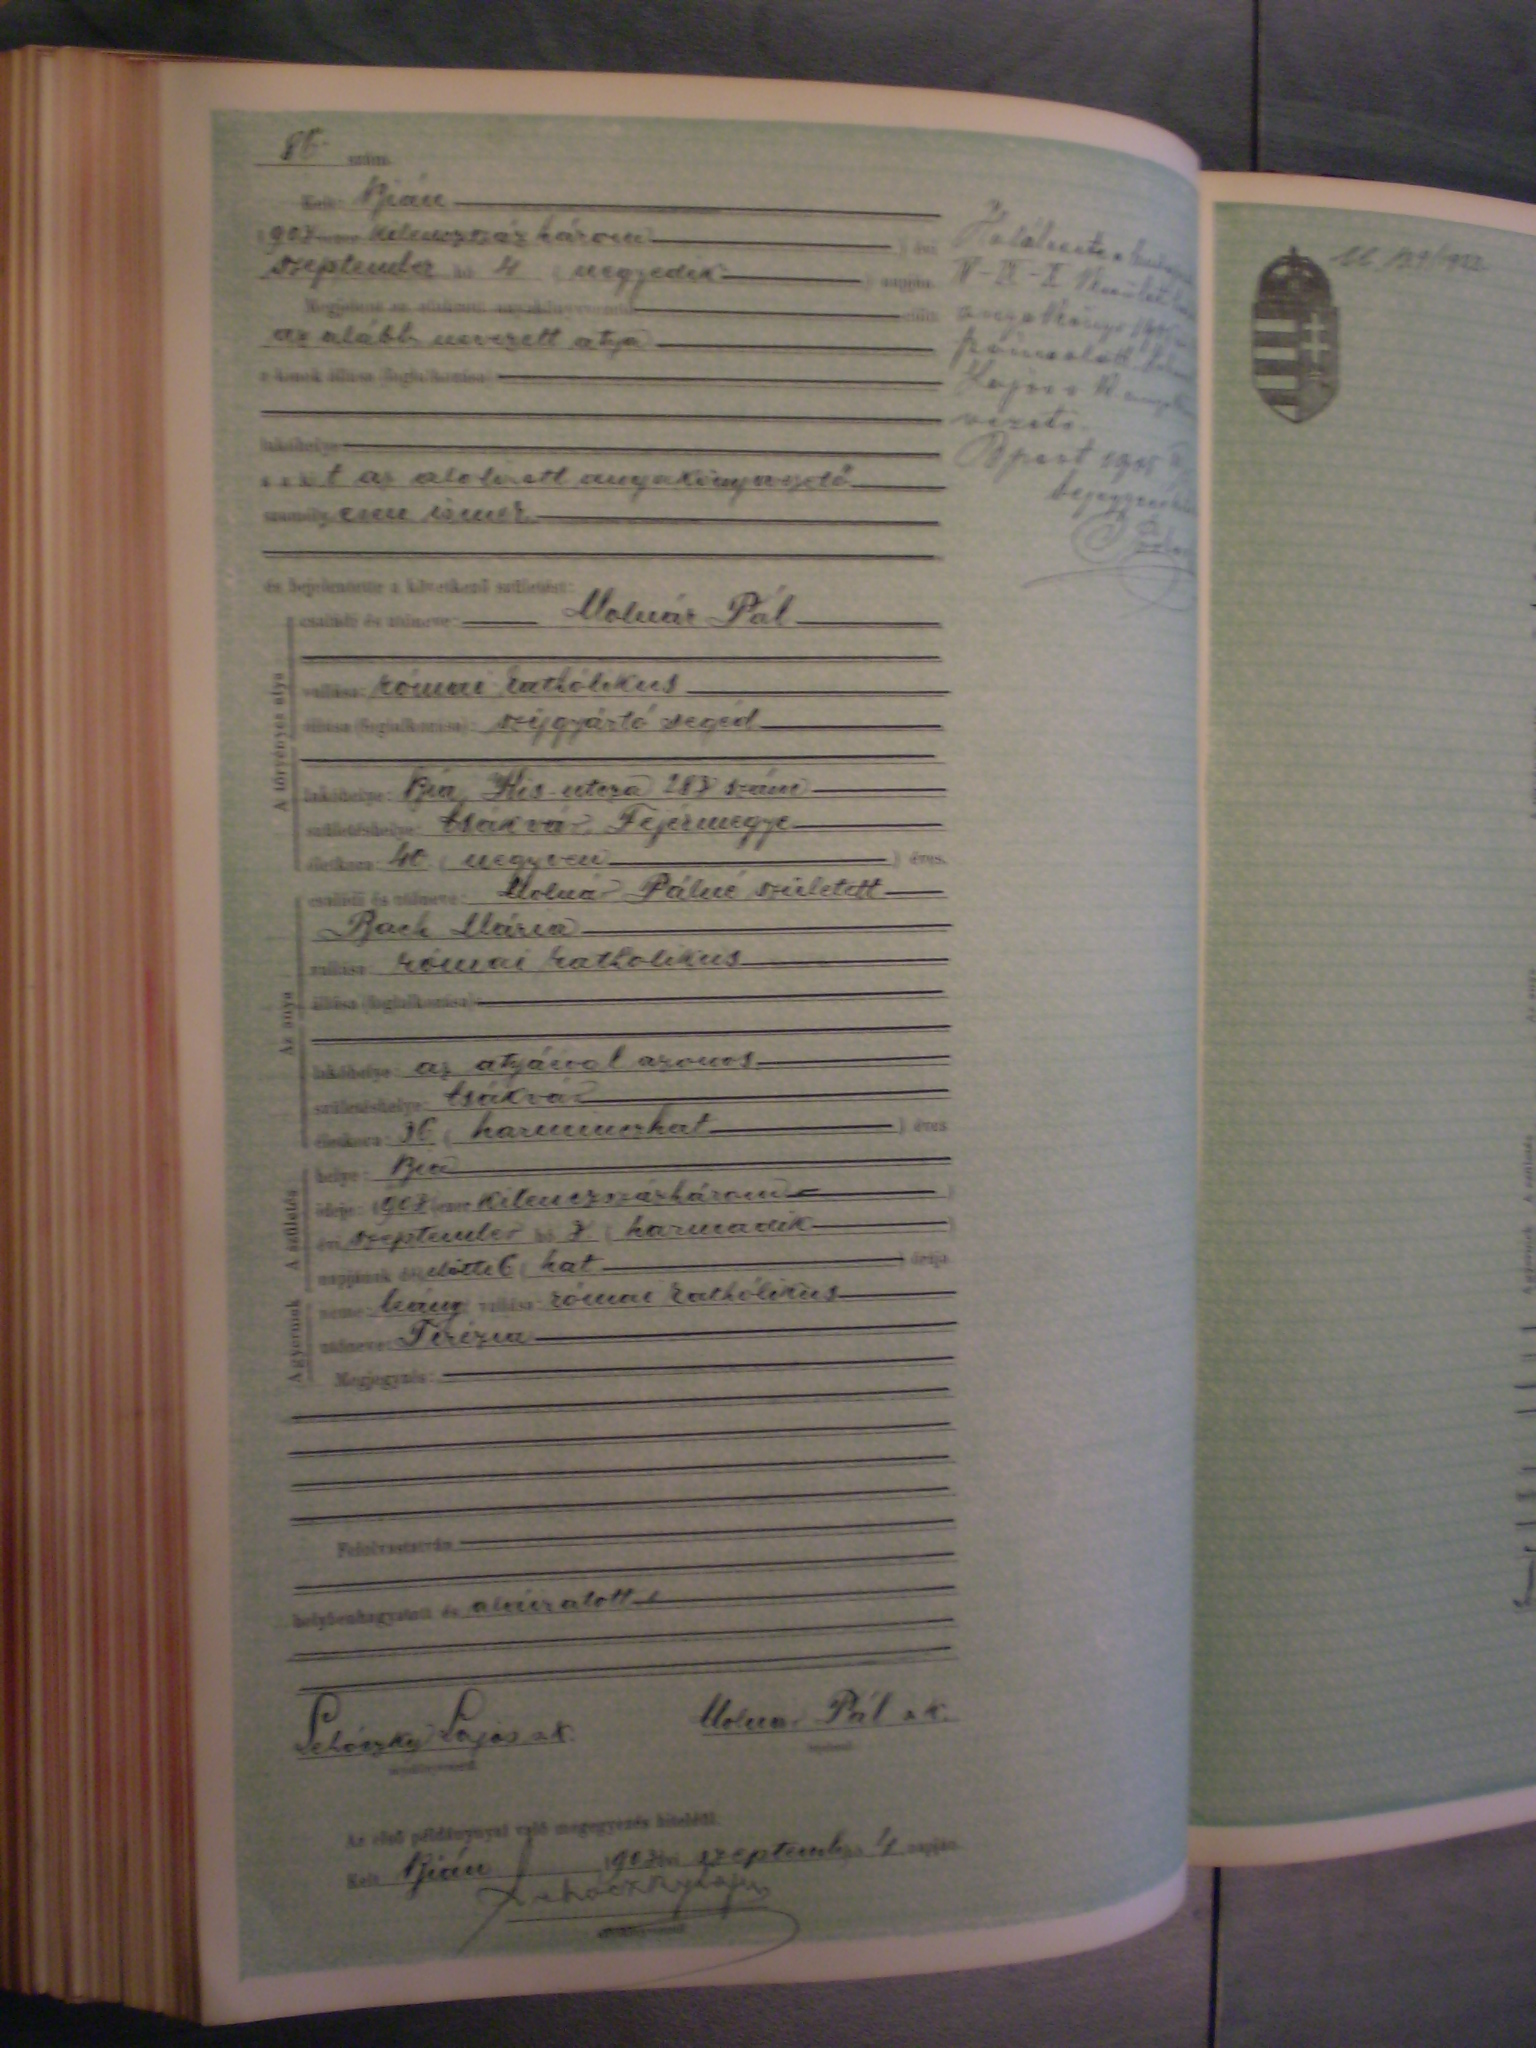 86 szám.
Kelt: Bián
1903 kilenczszázhárom) évi
szeptember hó 4 (negyedik) napján.
Megjelent az alulírott anyakönyvvezető előtt
az alább nevezett atya
a kinek állása (foglalkozása)
lakóhelye
a ki t az alolirott anyakönyvvezető
személyesen ismer
és bejelentette a következő születést:
A törvényes atya
családi és utóneve: Molnár Pál
vallása: római katholikus
állása (foglalkozása): szijgyártó segéd
lakóhelye: Bia, Kis-utcza 287 szám
születéshelye: Csákvár, Fejérmegye
életkora: 40 (negyven) éves.
Az anya
családi és utóneve: Molnár Pálné született
Bach Mária
vallása: római katholikus
állása (foglalkozása)
lakóhelye: az atyáéval azonos
születéshelye: Csákvár
életkora: 36 (harminczhat) éves
A születés
helye: Bia
ideje: 1903 ezer kilenczszázhárom)
évi szeptember hó 3. (harmadik)
napjának délelőtti 6 (hat) órája
A gyermek
neme: leány vallása: római katholikus
utóneve: Terézia
Megjegyzés:
Felolvastatván
helybenhagyatott és aláiratott
Lehóczky Lajos s.k. Molnár Pál s.k.
anyakönyvvezető
Az első példánynyal való megegyezés hiteléül.
Kelt Bián 1903 évi szeptember hó 4 napján.
Lehóczky Lajos
anyakönyvvezető
IV-IX-X
Lajos
vezető.
Bpest